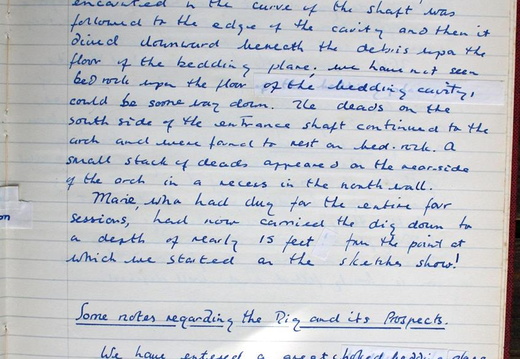 encountered in the curve of the shaft was
followed to the edge of the cavity and then it
dived downward beneath the debris upon the
floor of the bedding plane; we have not seen
bedrock upon the floor of the bedding cavity,
could be some way down. The deads on the
south side of the entrance shaft continued to the
arch and were found to rest on bed-rock. A
small stack of deads appeared on the near side
of the arch in a recess in the north wall.
Marie, who had dug for the entire four
sessions, had now carried the dig down to
a depth of nearly 15 feet from the point at
which we started as the sketches show!
Some notes regarding the Dig and its Prospects.
We have entered a great choked bedding plane
on